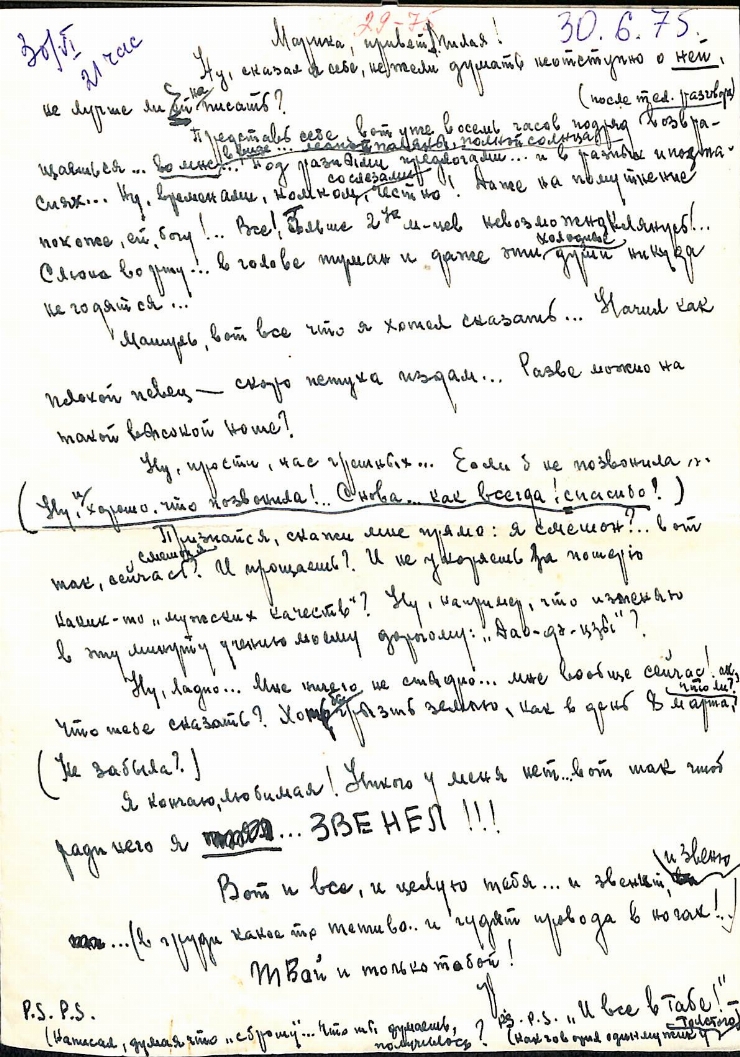 30/VI
21 час
29-75
30.6.75.
Марика, привет, милая!
Ну, сказал я себе, нежели думать неотступно о ней,
не лучше ли ей писать?
(после тел. разговора)
Представь себе, вот уже восемь часов подряд возвра-
в виде... поляны, полной солнца
щаешься... во мне... под разными предлогами... и в разных ипоста-
со слезами
сиях... Ну, временами, комком, честно! Даже на помутнение
похоже, ей, богу!... Все! Больше 2-ух м-цев невозможно, клянусь!...
холодные
Слюна во рту!... в голове туман и даже эти души никуда
не годятся...
Машуль, вот все что я хотел сказать... Начал как
плохой певец — скоро петуха издам... Разве можно на
такой высокой ноте?
Ну, прости, нас грешных... Если б не позвонила...
(Ну, и хорошо, что позвонила!.. Снова... как всегда! спасибо!)
Признайся, скажи мне прямо: я смешон?.. вот
смешон
так, сейчас? И прощаешь? И не укоряешь за потерю
каких-то „мужских качеств"? Ну, например, что изменяю
в эту минуту учению моему дорогому: „Дао-дэ-цзы"?
Ну, ладно... Мне ничего не стыдно... мне вообще сейчас!
что ли?
Что тебе сказать? Хоть грызть землю, как в день 8 марта,
(Не забыла?)
Я кончаю, любимая! Никого у меня нет... вот так чтоб
ради него я ... ЗВЕНЕЛ!!!
и звеню
Вот и все, и целую тебя... и звенит,
...(в груди какое то тетиво.. и гудят провода в ногах!..)
ТВой и только тобой!
P.S. P.S.
(Написал, думая что „сброшу"... Что ты думаешь,
получилось?
P.S. P.S. „И все в Табе!"
(как говорил один мужик у
Толстого)